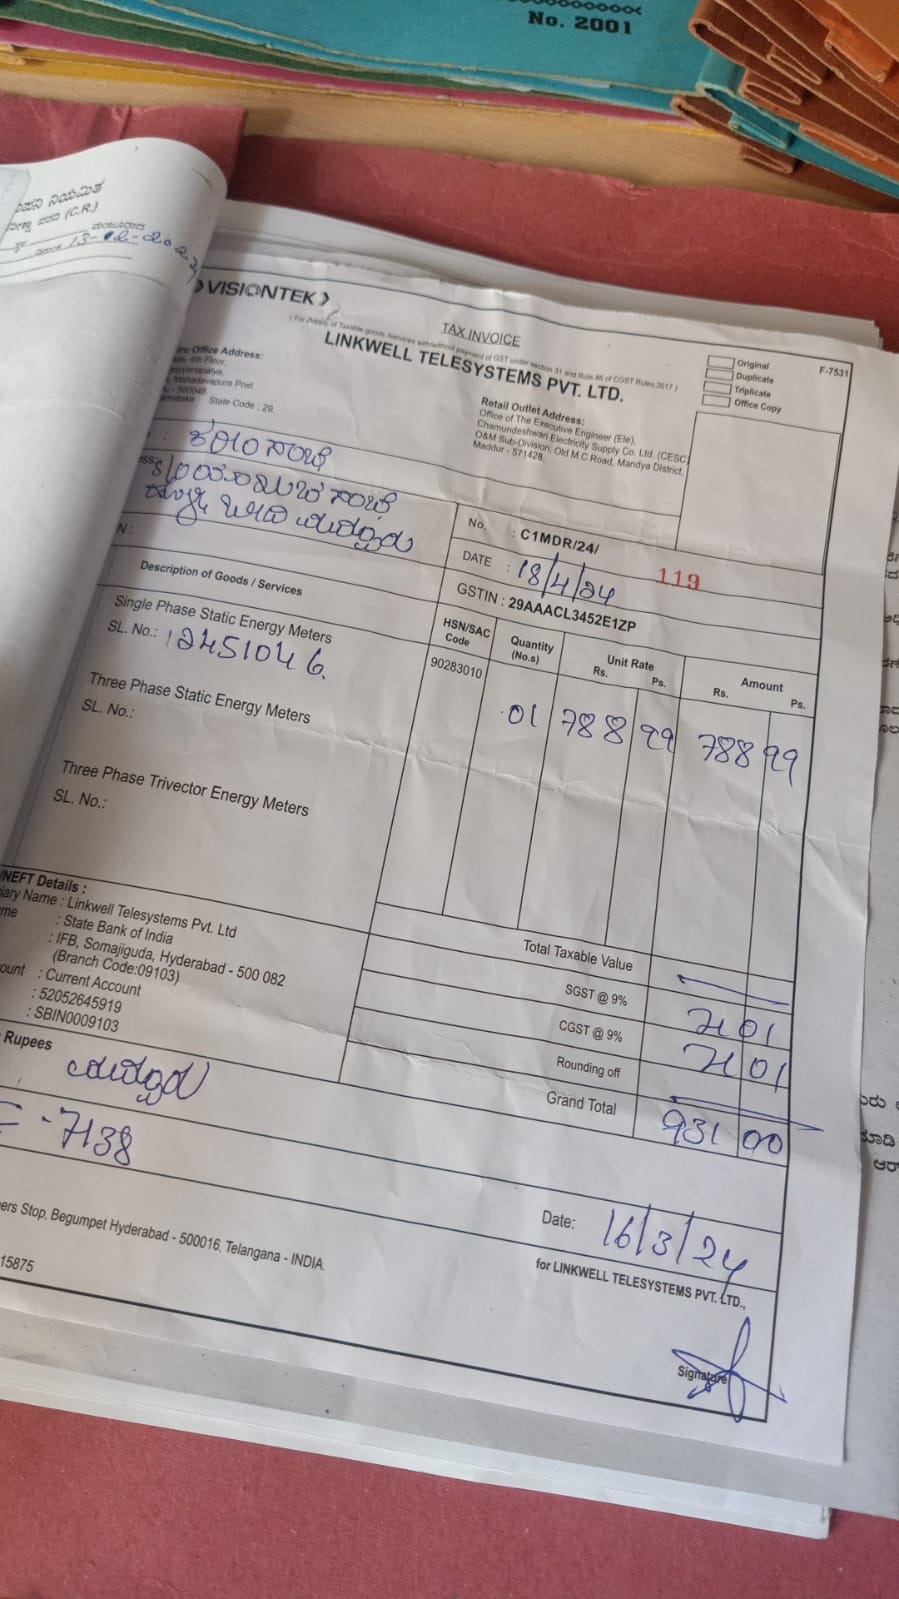 No. 2001
ನಿಯಮಿತ
(C.R.)
13-02-202
VISIONTEK
TAX INVOICE
( For Supply of Taxable goods /services with/without payment of GST under section 31 and Rule 46 of CGST Rules,2017 )
LINKWELL TELESYSTEMS PVT. LTD.
Original
Duplicate
Triplicate
Office Copy
F-7531
Office Address:
4th Floor,
Mahadevapura Post
- 560048.
State Code : 29.
Retail Outlet Address:
Office of The Executive Engineer (Ele),
Chamundeshwari Electricity Supply Co. Ltd. (CESC)
O&M Sub-Division, Old M.C Road, Mandya District,
Maddur - 571428.
No. : C1MDR/24/ 119
DATE : 18/4/24
GSTIN : 29AAACL3452E1ZP
N :
Description of Goods / Services
HSN/SAC Code
Quantity (No.s)
Unit Rate
Rs. Ps.
Amount
Rs. Ps.
Single Phase Static Energy Meters
SL. No.: 12451046.
90283010
01 788 99 788 99
Three Phase Static Energy Meters
SL. No.:
Three Phase Trivector Energy Meters
SL. No.:
/NEFT Details :
iary Name : Linkwell Telesystems Pvt. Ltd
me : State Bank of India
: IFB, Somajiguda, Hyderabad - 500 082
(Branch Code:09103)
ount : Current Account
: 52052645919
: SBIN0009103
Total Taxable Value
SGST @ 9% 71 01
CGST @ 9% 71 01
Rounding off
Grand Total 931 00
Rupees
-7138
Date: 16/3/24
ers Stop, Begumpet Hyderabad - 500016, Telangana - INDIA.
15875
for LINKWELL TELESYSTEMS PVT. LTD.,
Signature